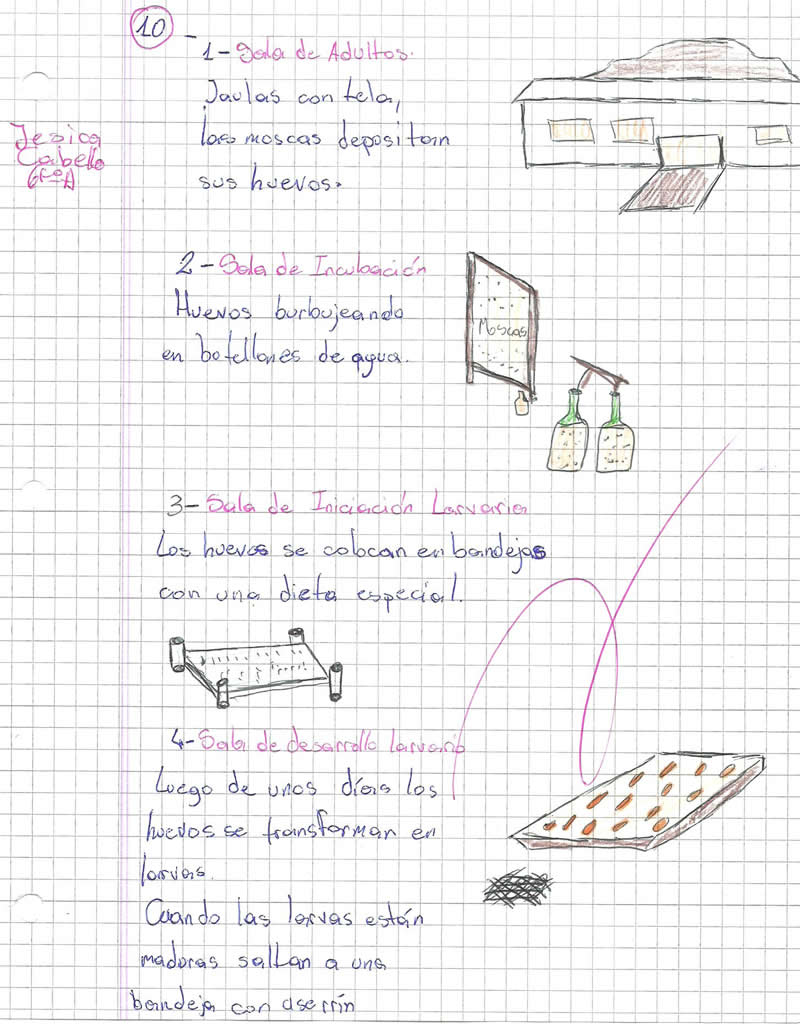 10 -
1- Sala de Adultos.
Jaulas con tela,
las moscas depositan
sus huevos.
Jesica
Cabello
6ºA
2- Sala de Incubación
Huevos burbujeando
en botellones de agua.
Moscas
3- Sala de Iniciación Larvaria
Los huevos se colocan en bandejas
con una dieta especial.
4- Sala de desarrollo larvario
Luego de unos días los
huevos se transforman en
larvas.
Cuando las larvas están
maduras saltan a una
bandeja con aserrín